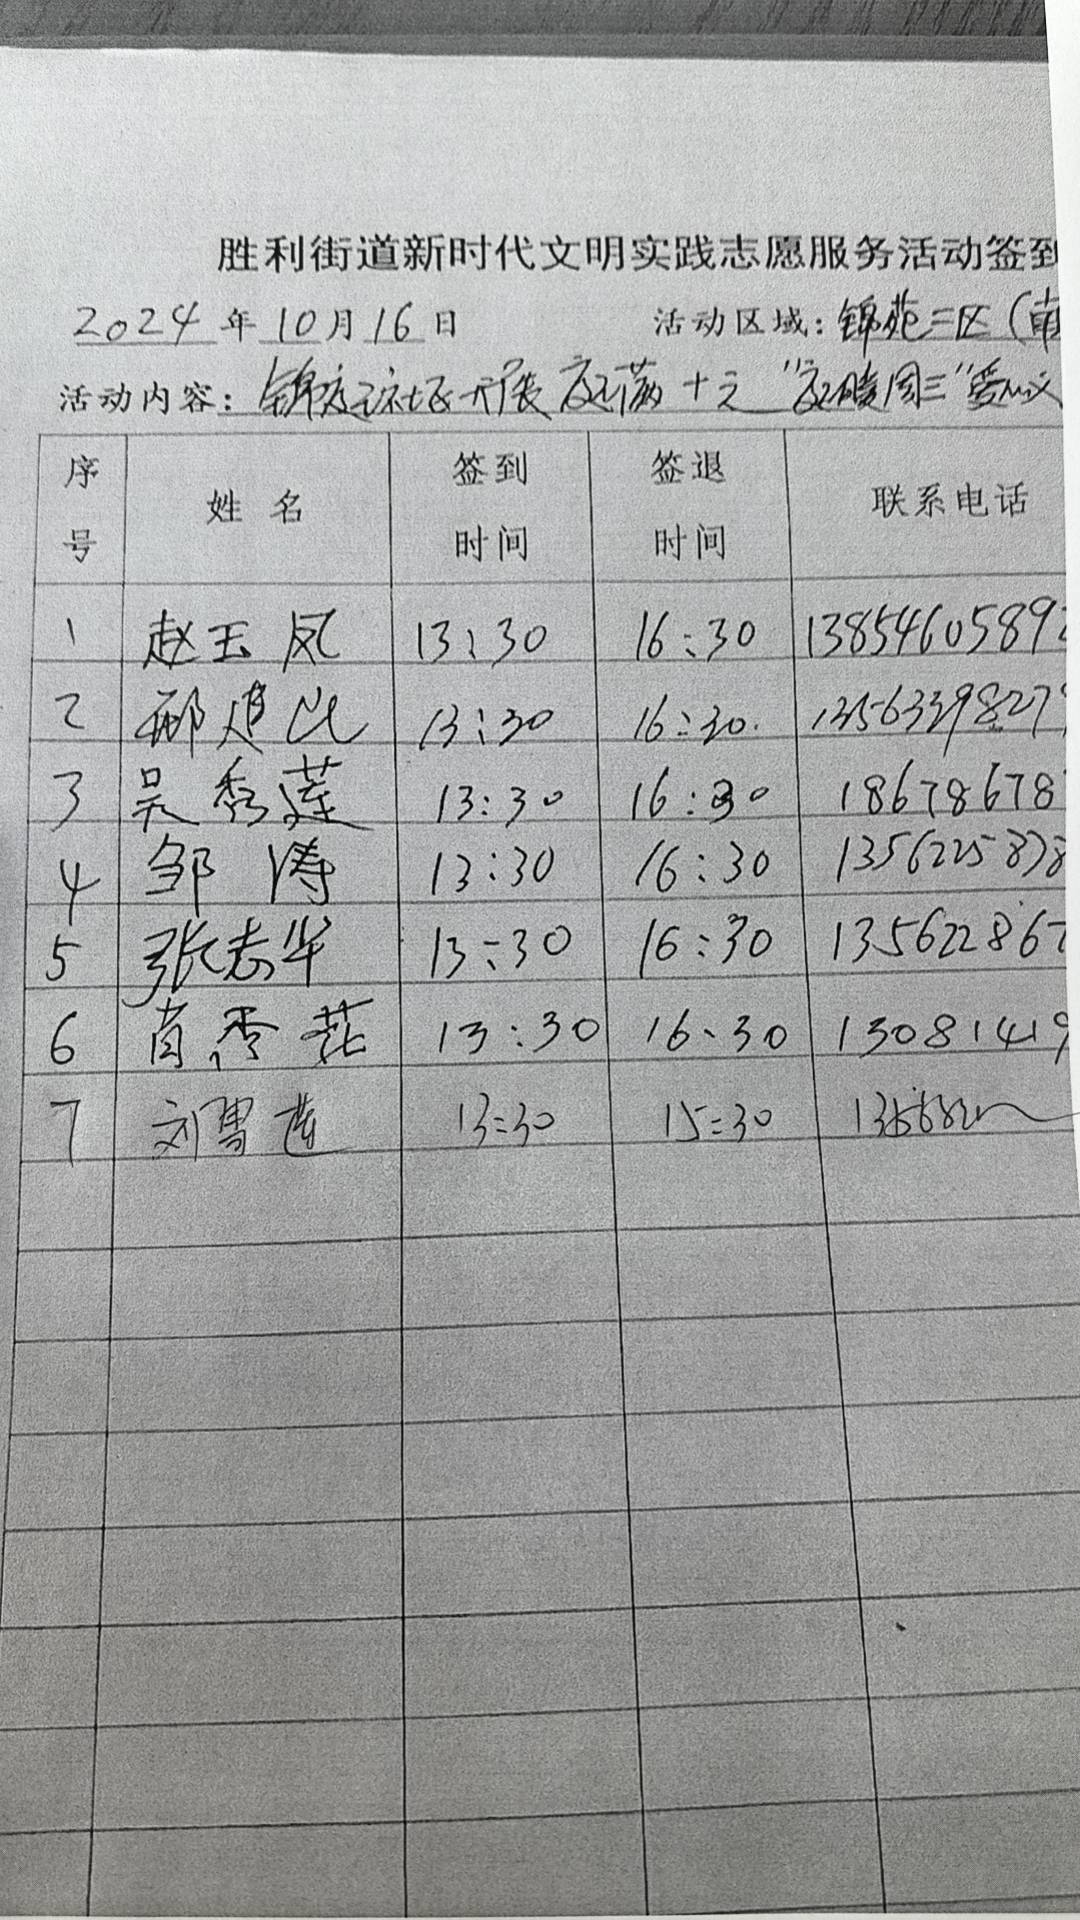 胜利街道新时代文明实践志愿服务活动签到
2024年10月16日 活动区域：锦苑三区（南
活动内容：锦苑社区开展 十元 "暖周三"义
序号 姓名 签到时间 签退时间 联系电话
1 赵玉凤 13:30 16:30 1385460589
2 邢建 13:30 16:30. 1356339827
3 吴秀莲 13:30 16:30 18678678
4 邹涛 13:30 16:30 135622583
5 张志华 13:30 16:30 135622867
6 肖秀花 13:30 16:30 13081419
7 刘雪莲 13:30 15:30